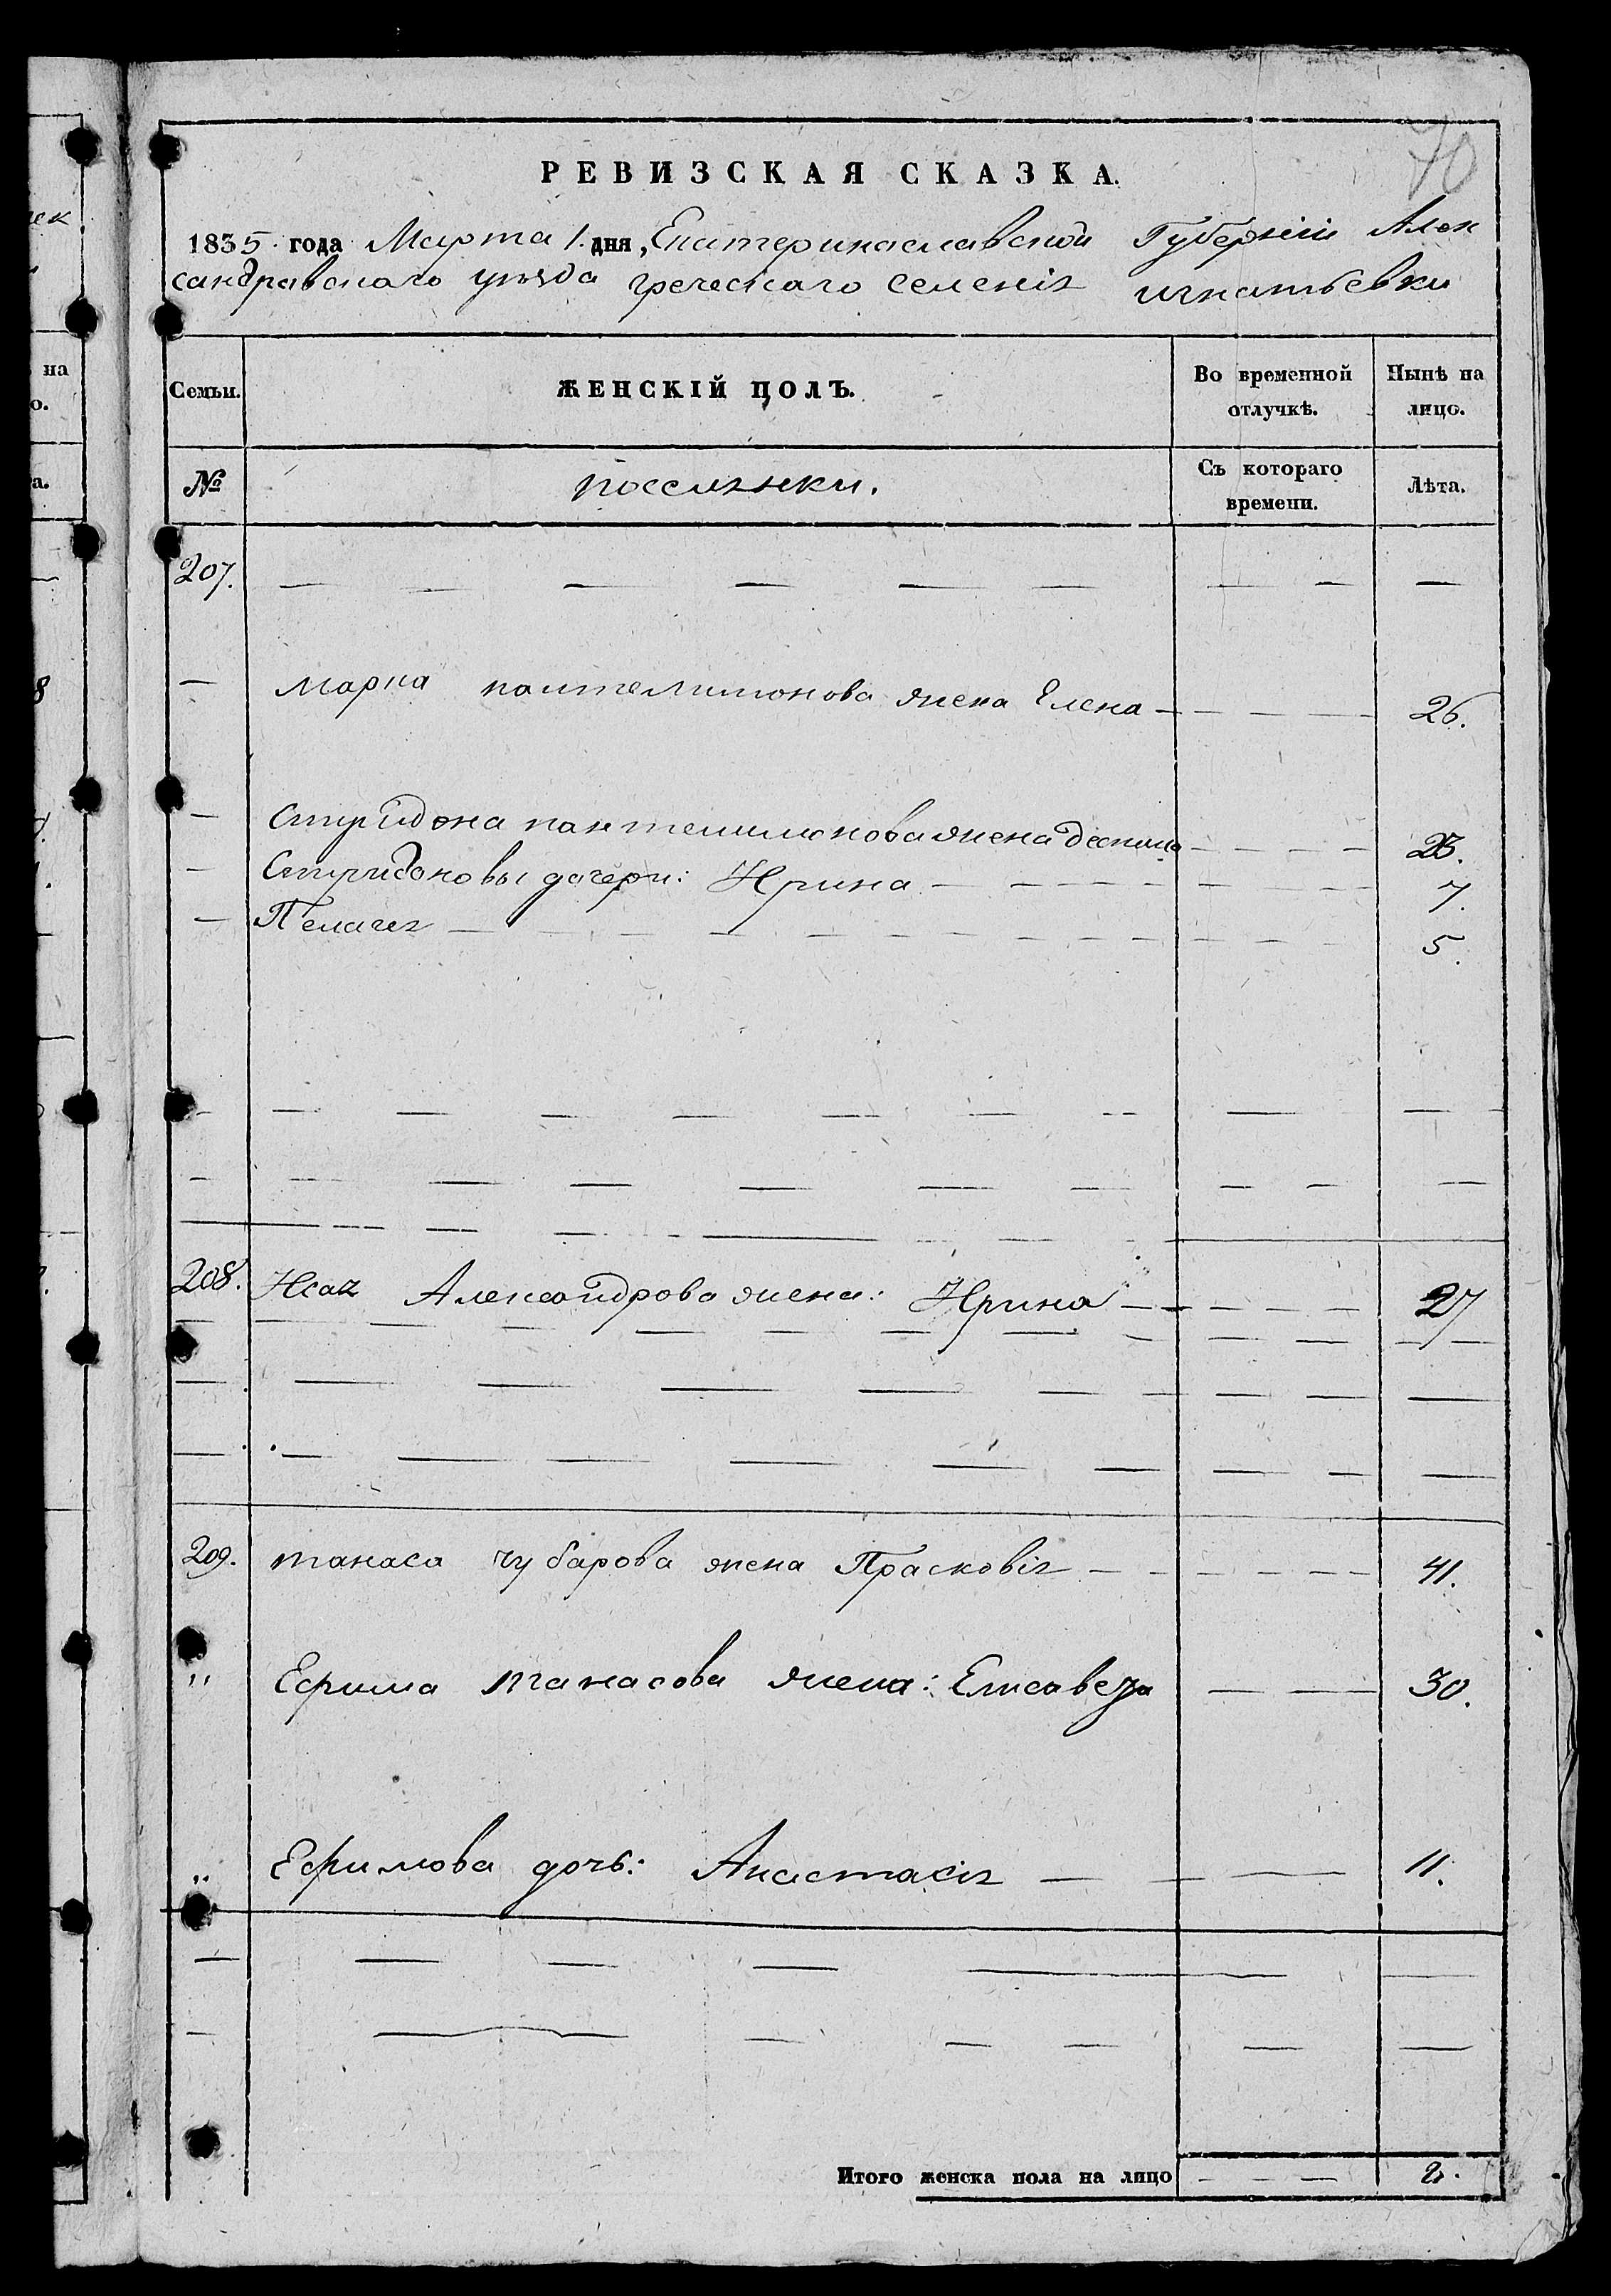 70
РЕВИЗСКАЯ СКАЗКА.
1835 года Марта 1. дня, Екатеринославской Губерніи Алек
сандравскаго уѣзда греческаго селенія игнатьевки
Семьи.
ЖЕНСКІЙ ПОЛЪ.
Во временной отлучкѣ.
Нынѣ на лицо.
№
поселянки.
Съ котораго времени.
Лѣта.
207. — — — — — — — —
— Марка пантелимонова жена Елена — — — — 26.
— Спиридона пантелимонова жена Деспина — — — 23.
— Спиридоновы дочери: Ирина — — — — 7.
— Пелагея — — — — — 5.
208. Исак Александрова жена: Ирина — — — — 27
209. танаса чубарова жена Прасковія — — — — 41.
" Ефима танасова жена: Елисавета — — 30.
" Ефимова дочь: Анастасія — — — 11.
Итого женска пола на лицо — — — 8.
на
о.
а.
8
ек